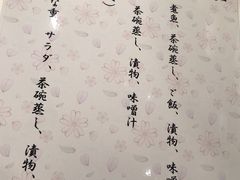 煮魚、茶碗蒸し、ご飯、漬物、味噌
茶碗蒸し、漬物、味噌汁
）
な重、サラダ、茶碗蒸し、漬物、